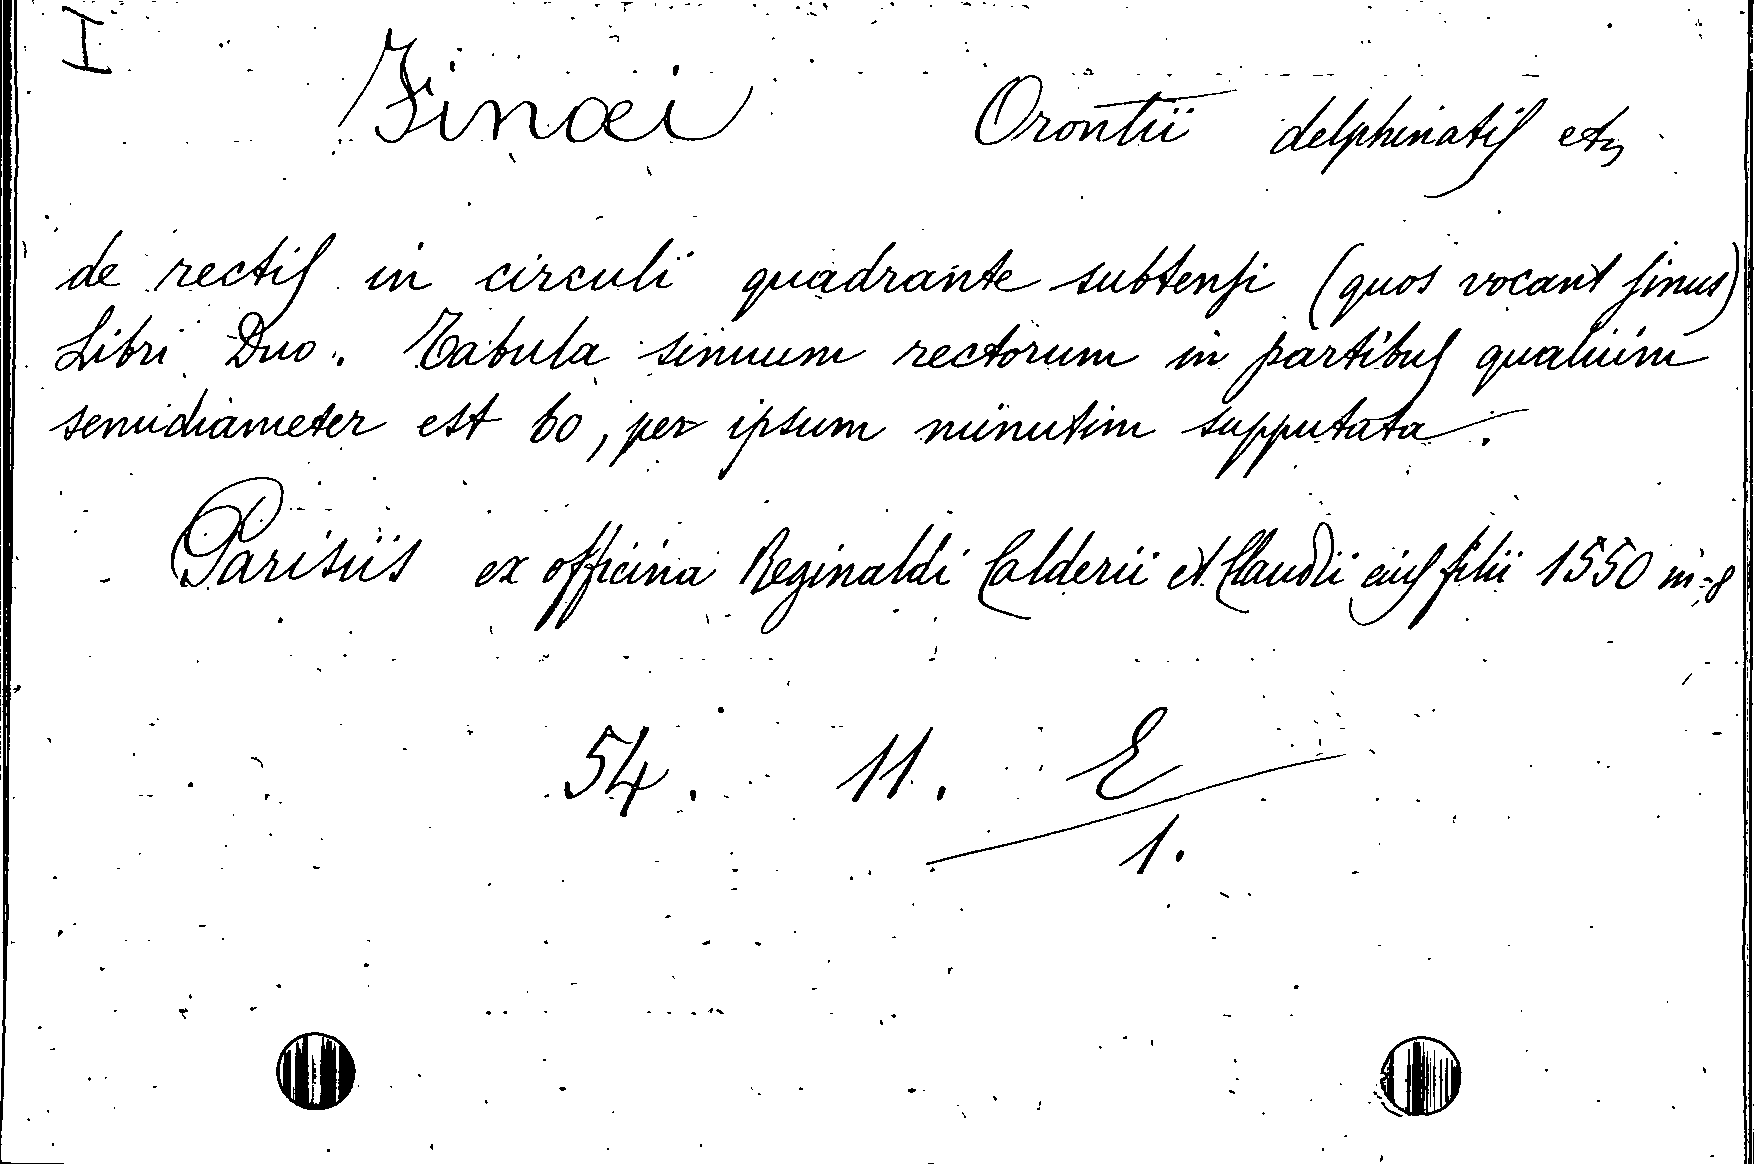 I
Finœi Orontii delphinatiſ etc
de rectiſ in circuli quadrante subtenſi (quos vocant ſinus)
Libri Duo. Tabula sinuum rectorum in partibuſ qualium
semidiameter est 60, per ipsum minutim supputata.
Parisiis ex officina Reginaldi Calderii et Claudii eiuſ filii 1550 in-8
54. 11. E
1.